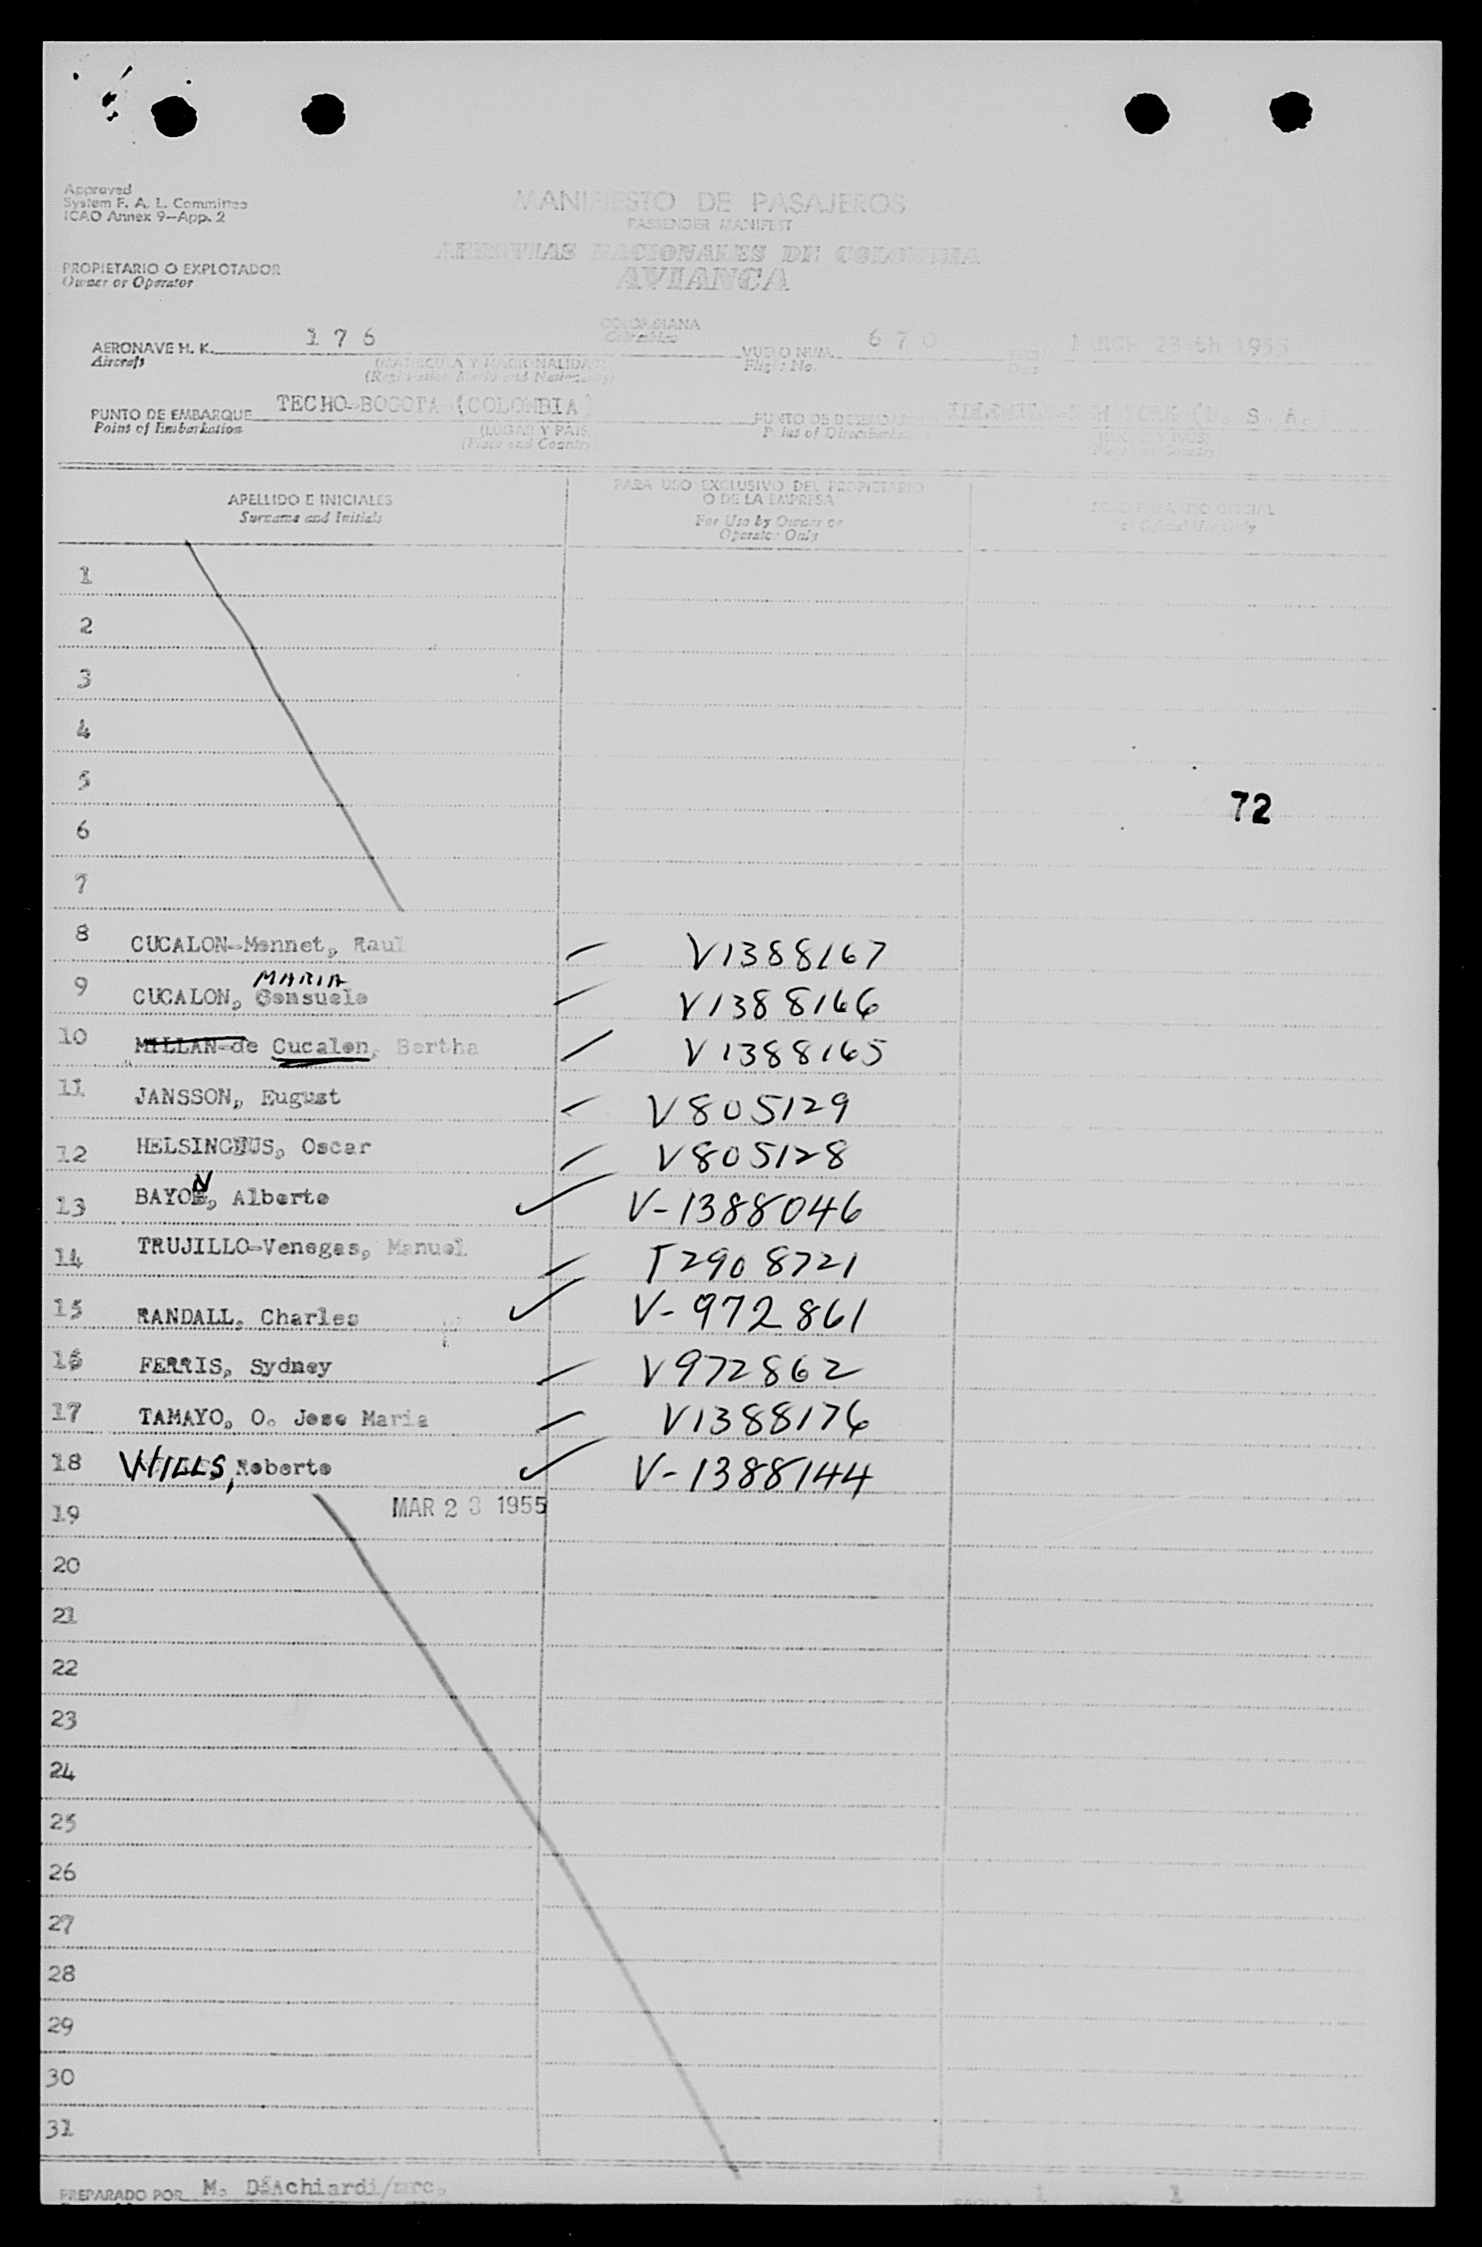 Approved
System F. A. L. Committee
ICAO Annex 9—App. 2
MANIFIESTO DE PASAJEROS
PASSENGER MANIFEST
AEROVIAS NACIONALES DE COLOMBIA
AVIANCA
PROPIETARIO O EXPLOTADOR
Owner or Operator
COLOMBIANA
Colombian
AERONAVE H. K. 176 VUELO NUM. 670 MARCH 23 th 1955
Aircraft (MATRICULA Y NACIONALIDAD) Flight No. Date
(Registration Marks and Nationality)
PUNTO DE EMBARQUE TECHO-BOGOTA (COLOMBIA) PUNTO DE S. A.
Point of Embarkation (LUGAR Y PAIS) Point of
(Place and Country)
APELLIDO E INICIALES PARA USO EXCLUSIVO DEL PROPIETARIO
O DE LA EMPRESA
Surname and Initials For Use by Owner or
Operator Only
1
2
3
4
5
6
72
7
8 CUCALON-Mennet, Raul V1388167
MARIA
9 CUCALON, Consuelo V1388166
10 MILLAN-de Cucalon, Bertha V1388165
11 JANSSON, Eugust V805129
12 HELSINGIUS, Oscar V805128
13 BAYON, Alberto V-1388046
14 TRUJILLO-Venegas, Manuel T2908721
15 RANDALL, Charles V-972861
16 FERRIS, Sydney V972862
17 TAMAYO, O. Jose Maria V1388176
18 WILLS, Roberto V-1388144
19 MAR 23 1955
20
21
22
23
24
25
26
27
28
29
30
31
PREPARADO POR M. D'Achiardi/mrc. 1 1